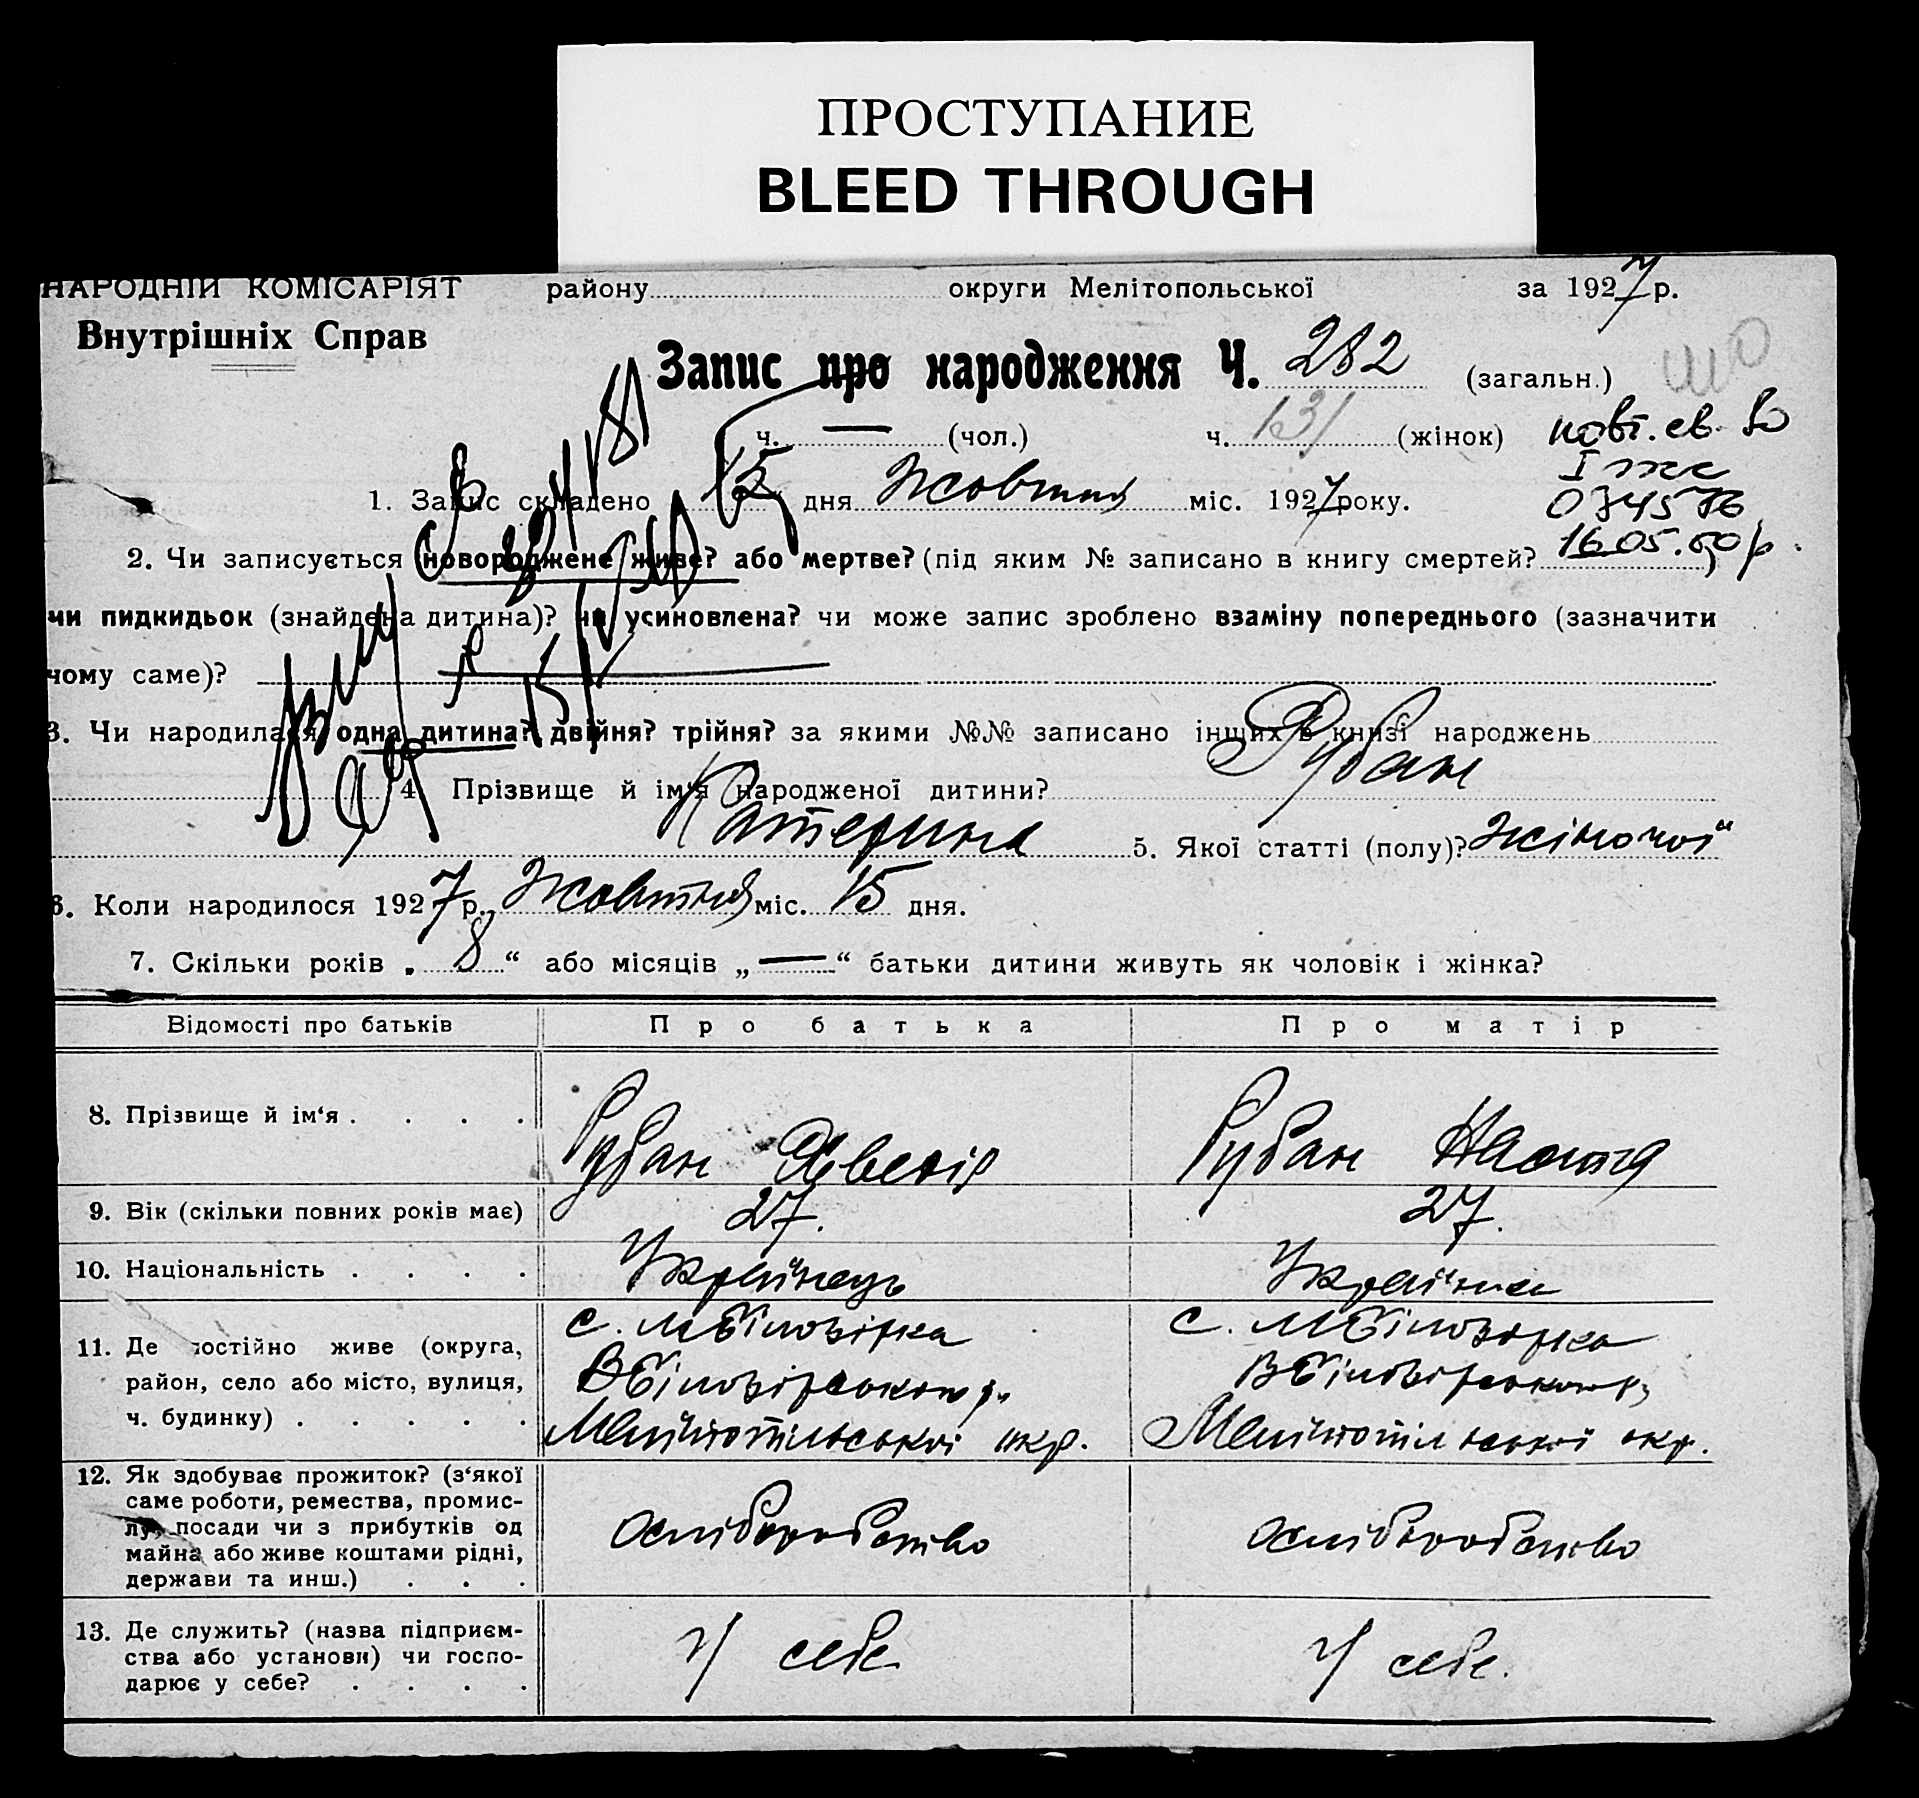 ПРОСТУПАНИЕ
BLEED THROUGH
НАРОДНІЙ КОМІСАРІЯТ району округи Мелітопольської за 1927 р.
Внутрішніх Справ
Запис про народження Ч. 282 (загальн.)
ч. — (чол.) ч. 131 (жінок)
1. Запис складено дня Жовтня міс. 1927 року.
16.05.60р.
2. Чи записується новороджене живе? або мертве? (під яким № записано в книгу смертей? )
чи пидкидьок (знайдена дитина)? чи усиновлена? чи може запис зроблено взаміну попереднього (зазначити
чому саме)?
3. Чи народилася одна дитина? двійня? трійня? за якими №№ записано інших в книзі народжень
4. Прізвище й ім'я народженої дитини? Рубан
Катерина 5. Якої статті (полу)? жіночої
6. Коли народилося 1927 р. Жовтня міс. 15 дня.
7. Скільки років „ 8 “ або місяців „ — “ батьки дитини живуть як чоловік і жінка?
Відомості про батьків Про батька Про матір
8. Прізвище й ім‘я . . . . Рубан Рубан Настя
9. Вік (скільки повних років має) 27. 27.
10. Національність . . . . Українець Українка
11. Де постійно живе (округа, район, село або місто, вулиця, ч. будинку) . . . . .
с. М Білозірка
В Білозірського р.
Мелітопільської окр.
с. М Білозірка
В Білозірського р.
Мелітопільської окр.
12. Як здобуває прожиток? (з‘якої
саме роботи, ремества, промис-
лу, посади чи з прибутків од
майна або живе коштами рідні,
держави та инш.) . . .
хліборобство хліборобство
13. Де служить? (назва підприєм-
ства або установи) чи госпо-
дарює у себе? . . . .
У себе У себе.